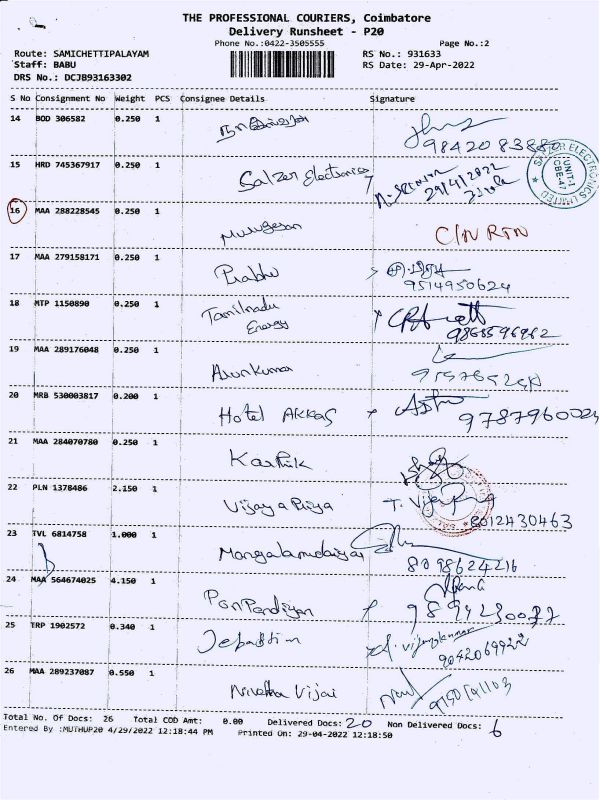 THE PROFESSIONAL COURIERS, Coimbatore
Delivery Runsheet - P20
Phone No.:0422-3505555 Page No.:2
Route: SAMICHETTIPALAYAM RS No.: 931633
Staff: BABU RS Date: 29-Apr-2022
DRS No.: DCJB93163302
S No Consignment No Weight PCS Consignee Details Signature
14 BOD 306582 0.250 1
9842083880
15 HRD 745367917 0.250 1 Salzer Electronics
29/4/2022
SALZER ELECTRONICS LIMITED
UNIT-1
CBE-47
16 MAA 288228545 0.250 1 Murugesan C/N RTN
17 MAA 279158171 0.250 1 Prabhu
9514950624
18 MTP 1150890 0.250 1 Tamilnadu
Energy
19 MAA 289176048 0.250 1 Arunkumar
20 MRB 530003817 0.200 1 Hotel AKKAS
21 MAA 284070780 0.250 1 Karthik
22 PLN 1378486 2.150 1 Vijaya Priya
8012430463
23 TVL 6814758 1.000 1
8098624216
24 MAA 564674025 4.150 1 Pon Pandiyan
25 TRP 1902572 0.340 1
26 MAA 289237087 0.550 1 Nivetha Vijai
Total No. Of Docs: 26 Total COD Amt: 0.00 Delivered Docs: 20 Non Delivered Docs: 6
Entered By :MUTHUP20 4/29/2022 12:18:44 PM Printed On: 29-04-2022 12:18:50